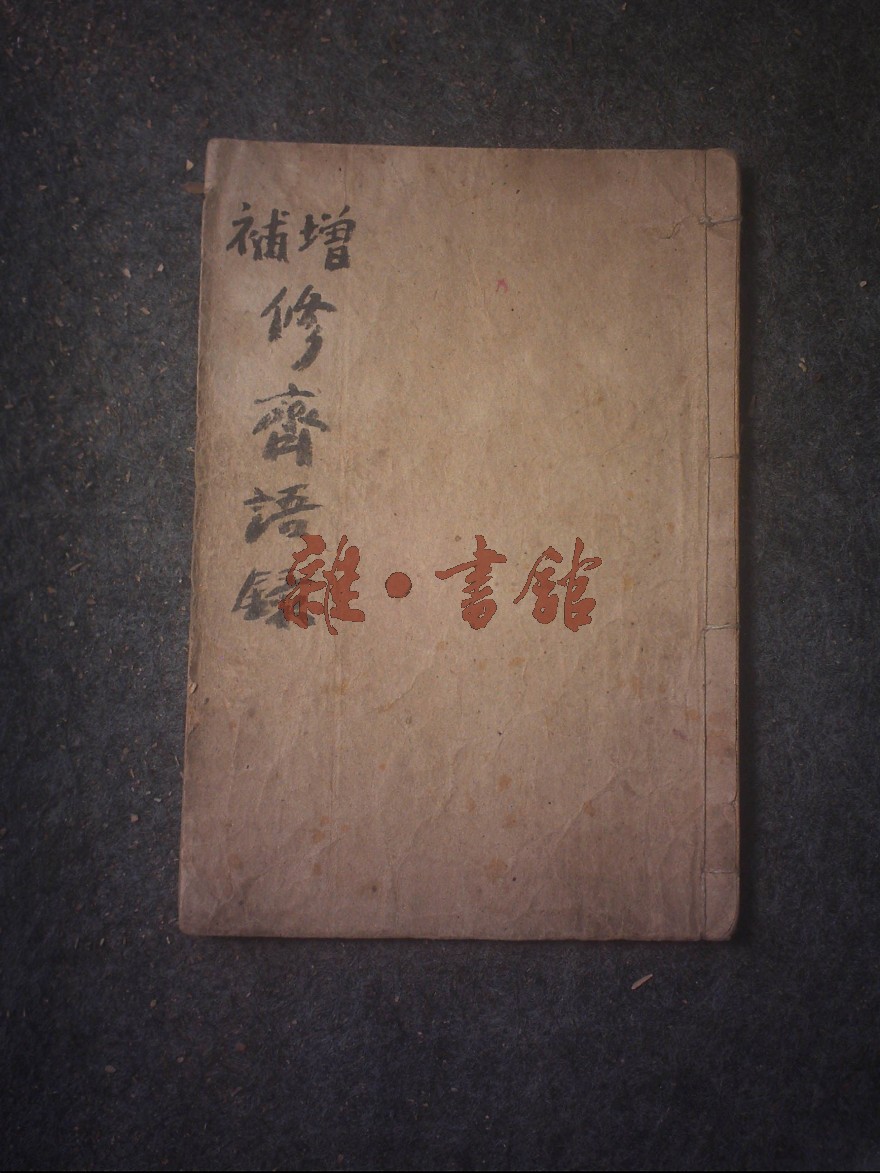 增補
修齊語錄
雜·書館